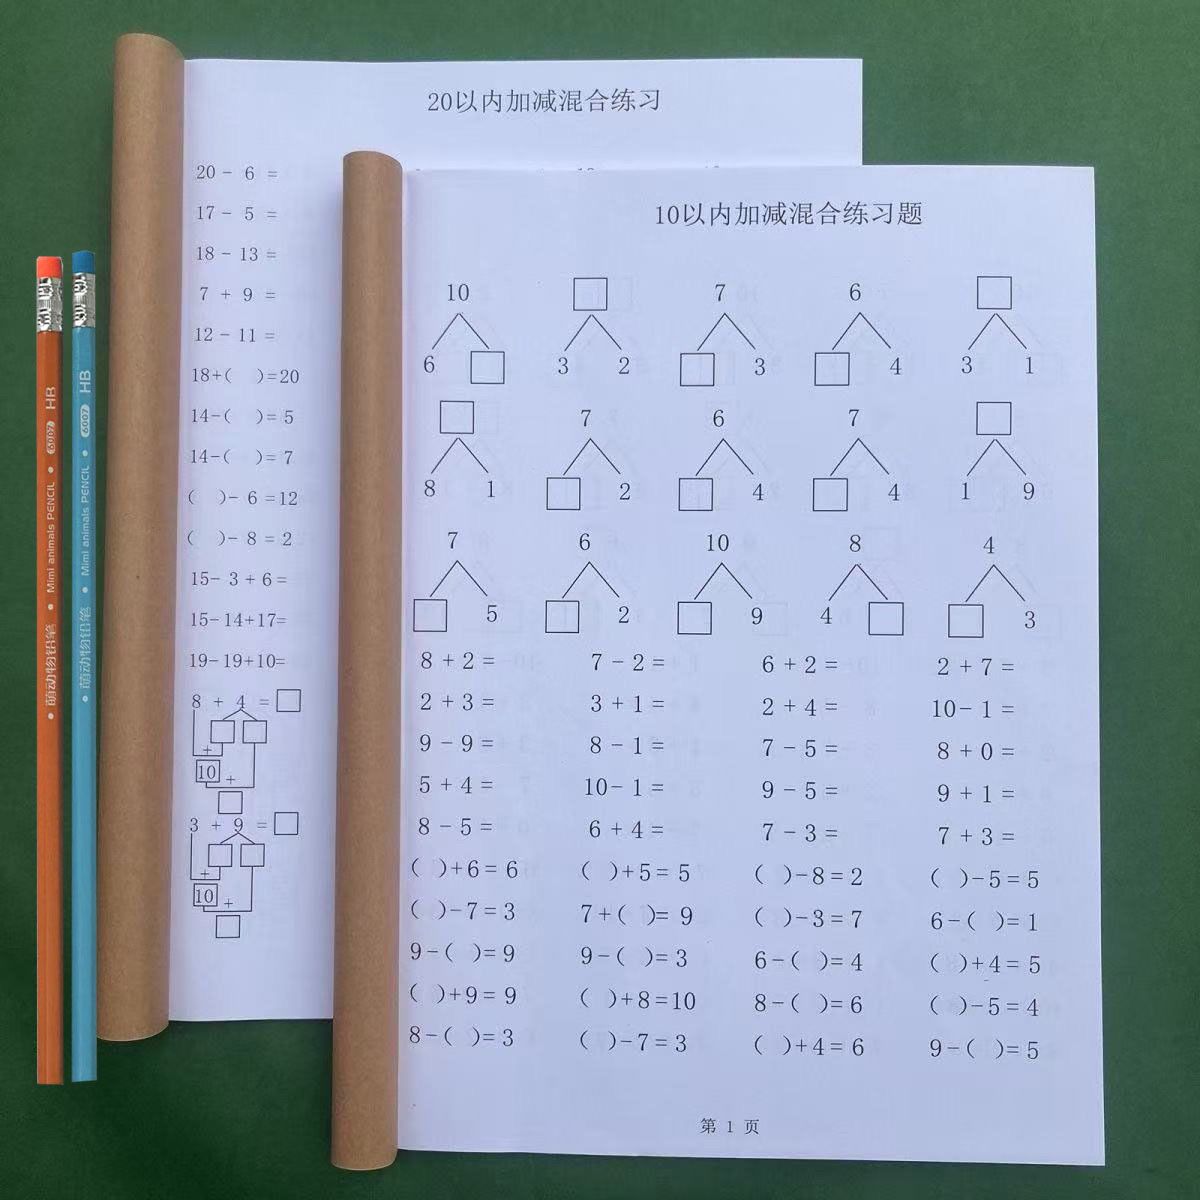 20以内加减混合练习
20- 6 =
17- 5 =
18-13 =
7 + 9 =
12-11 =
18+( )=20
14-( )= 5
14-( )= 7
( )- 6 =12
( )- 8 = 2
15- 3 + 6 =
15-14+17=
19-19+10=
8 + 4 = □
□ □
+
10 +
□
3 + 9 = □
□ □
+
10 +
□
10以内加减混合练习题
10 □ 7 6 □
6 □ 3 2 □ 3 □ 4 3 1
□ 7 6 7 □
8 1 □ 2 □ 4 □ 4 1 9
7 6 10 8 4
□ 5 □ 2 □ 9 4 □ □ 3
8 + 2 = 7 - 2 = 6 + 2 = 2 + 7 =
2 + 3 = 3 + 1 = 2 + 4 = 10- 1 =
9 - 9 = 8 - 1 = 7 - 5 = 8 + 0 =
5 + 4 = 10- 1 = 9 - 5 = 9 + 1 =
8 - 5 = 6 + 4 = 7 - 3 = 7 + 3 =
( )+6= 6 ( )+5= 5 ( )-8=2 ( )-5=5
( )-7=3 7+( )= 9 ( )-3=7 6-( )=1
9-( )=9 9-( )=3 6-( )=4 ( )+4=5
( )+9= 9 ( )+8=10 8-( )=6 ( )-5=4
8-( )=3 ( )-7=3 ( )+4=6 9-( )=5
第 1 页
萌动物铅笔 • Mimi animals PENCIL • 6007 HB
萌动物铅笔 • Mimi animals PENCIL • 6007 HB